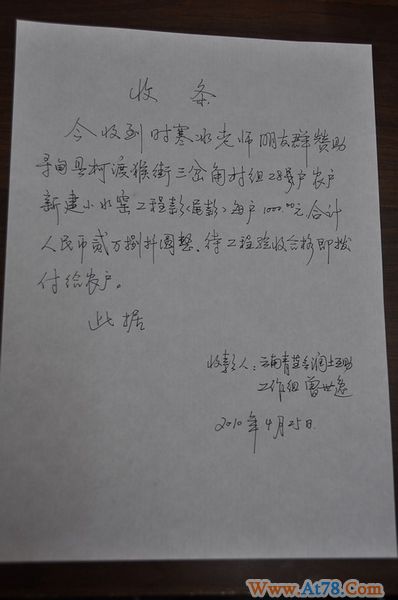 收条
今收到时寒冰老师朋友群赞助
寻甸县柯渡猴街三岔角村组28户农户
新建小水窖工程款(尾款)每户1000.00元合计
人民币贰万捌仟圆整.待工程验收合格即拨
付给农户。
此据
收款人:云南青基会润土互助
工作组 曾世逸
2010年4月25日
www.At78.Com